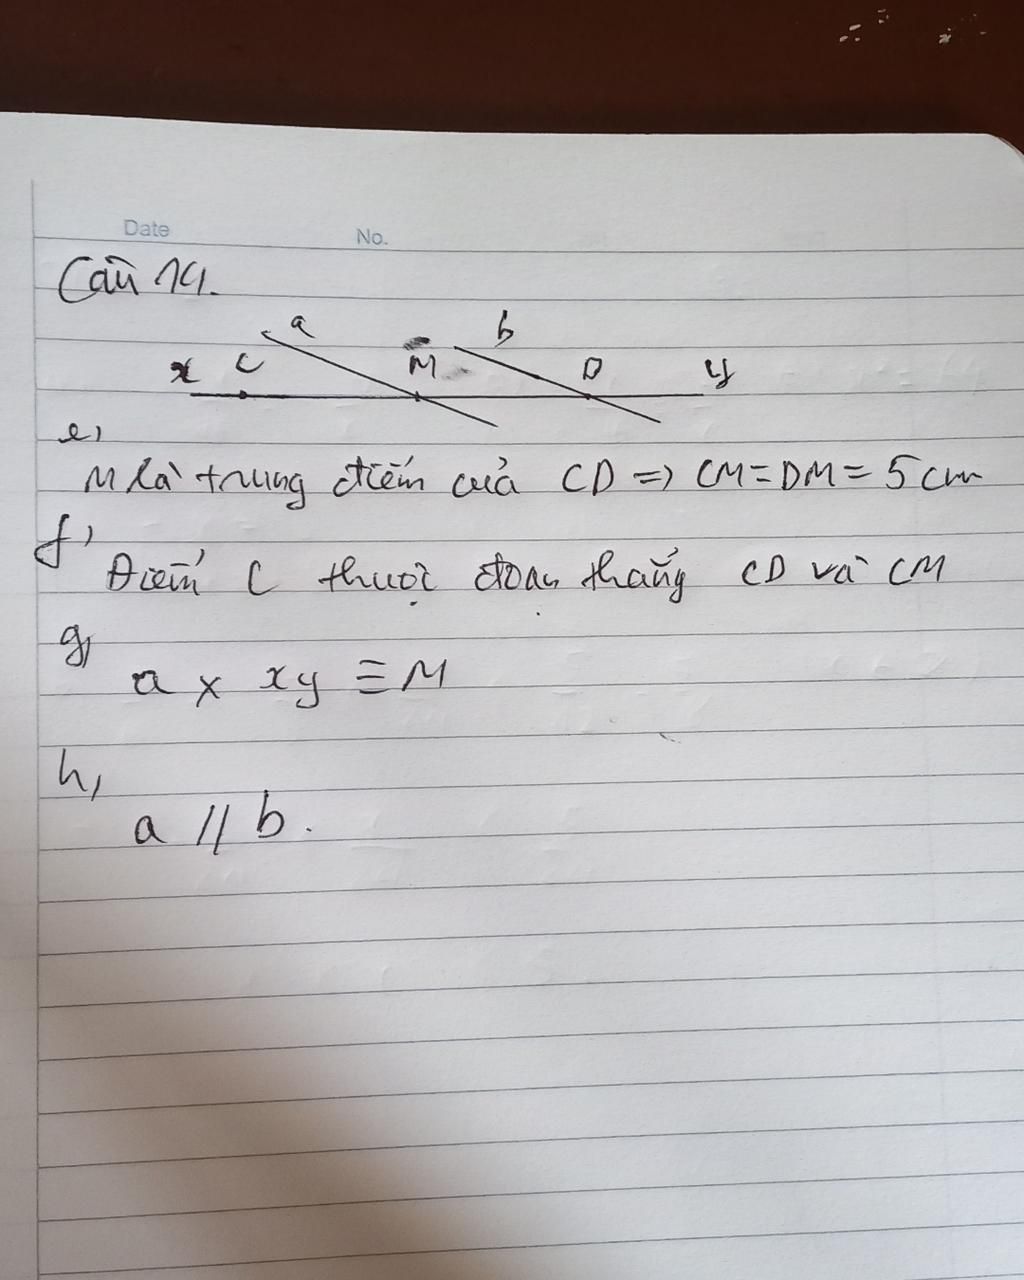 Date No.
Câu 14.
a b
x C M D y
e,
M là trung điểm của CD => CM = DM = 5 cm
f,
Điểm C thuộc đoạn thẳng CD và CM
g,
a x xy ≡ M
h,
a // b.